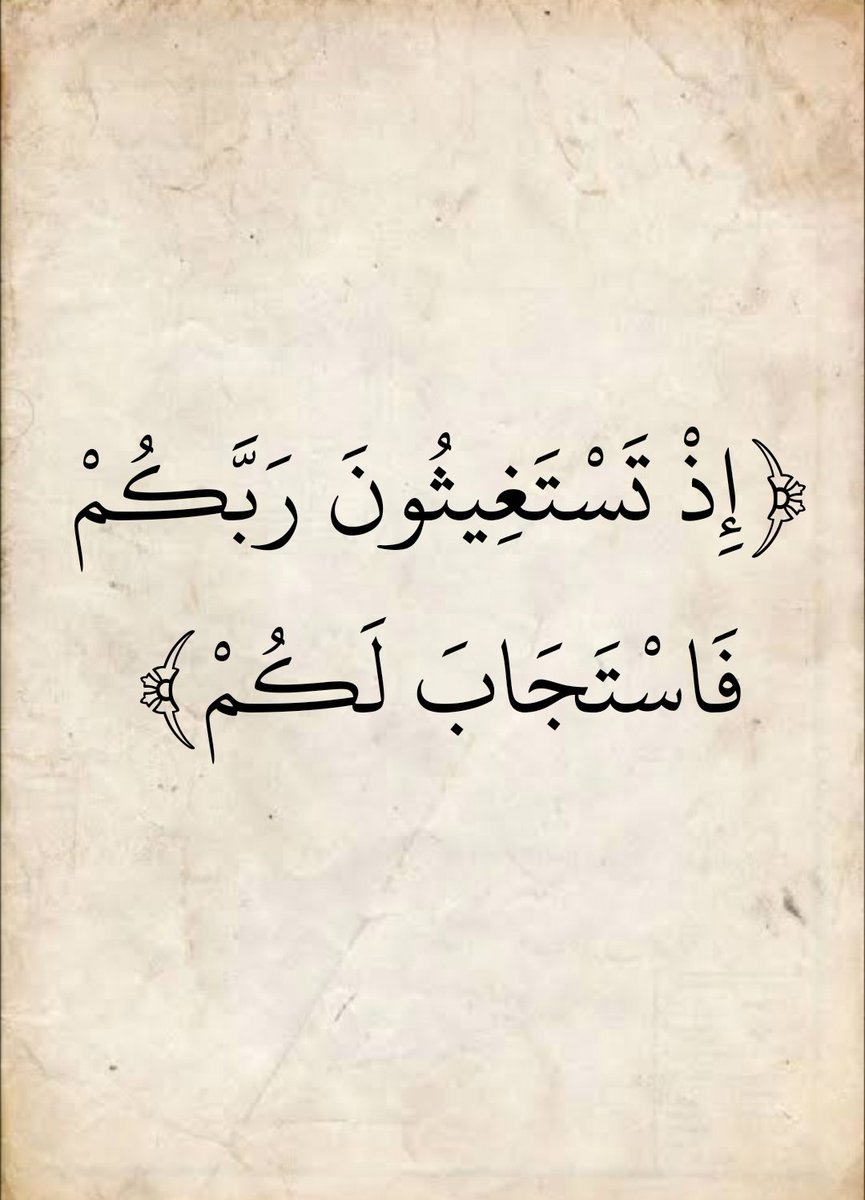 ﴿إِذْ تَسْتَغِيثُونَ رَبَّكُمْ
فَاسْتَجَابَ لَكُمْ﴾